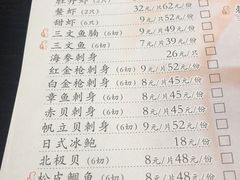 鳌虾(2只) 32元/片62元/份
甜虾(6只) 52元/份
三文鱼腩(6切) 8元/片45元/份
三文鱼(6切) 7元/片39元/份
海参刺身 26元/只
红金枪刺身(6切) 8元/片45元/份
白金枪刺身(6切) 8元/片45元/份
章鱼刺身(6切) 8元/片45元/份
赤贝刺身(6切) 8元/片45元/份
帆立贝刺身(6切) 9元/片52元/份
日式冰鲍 18元/份
北极贝(6切) 8元/片48元/份
松皮鲷鱼(6切) 8元/片48元/份